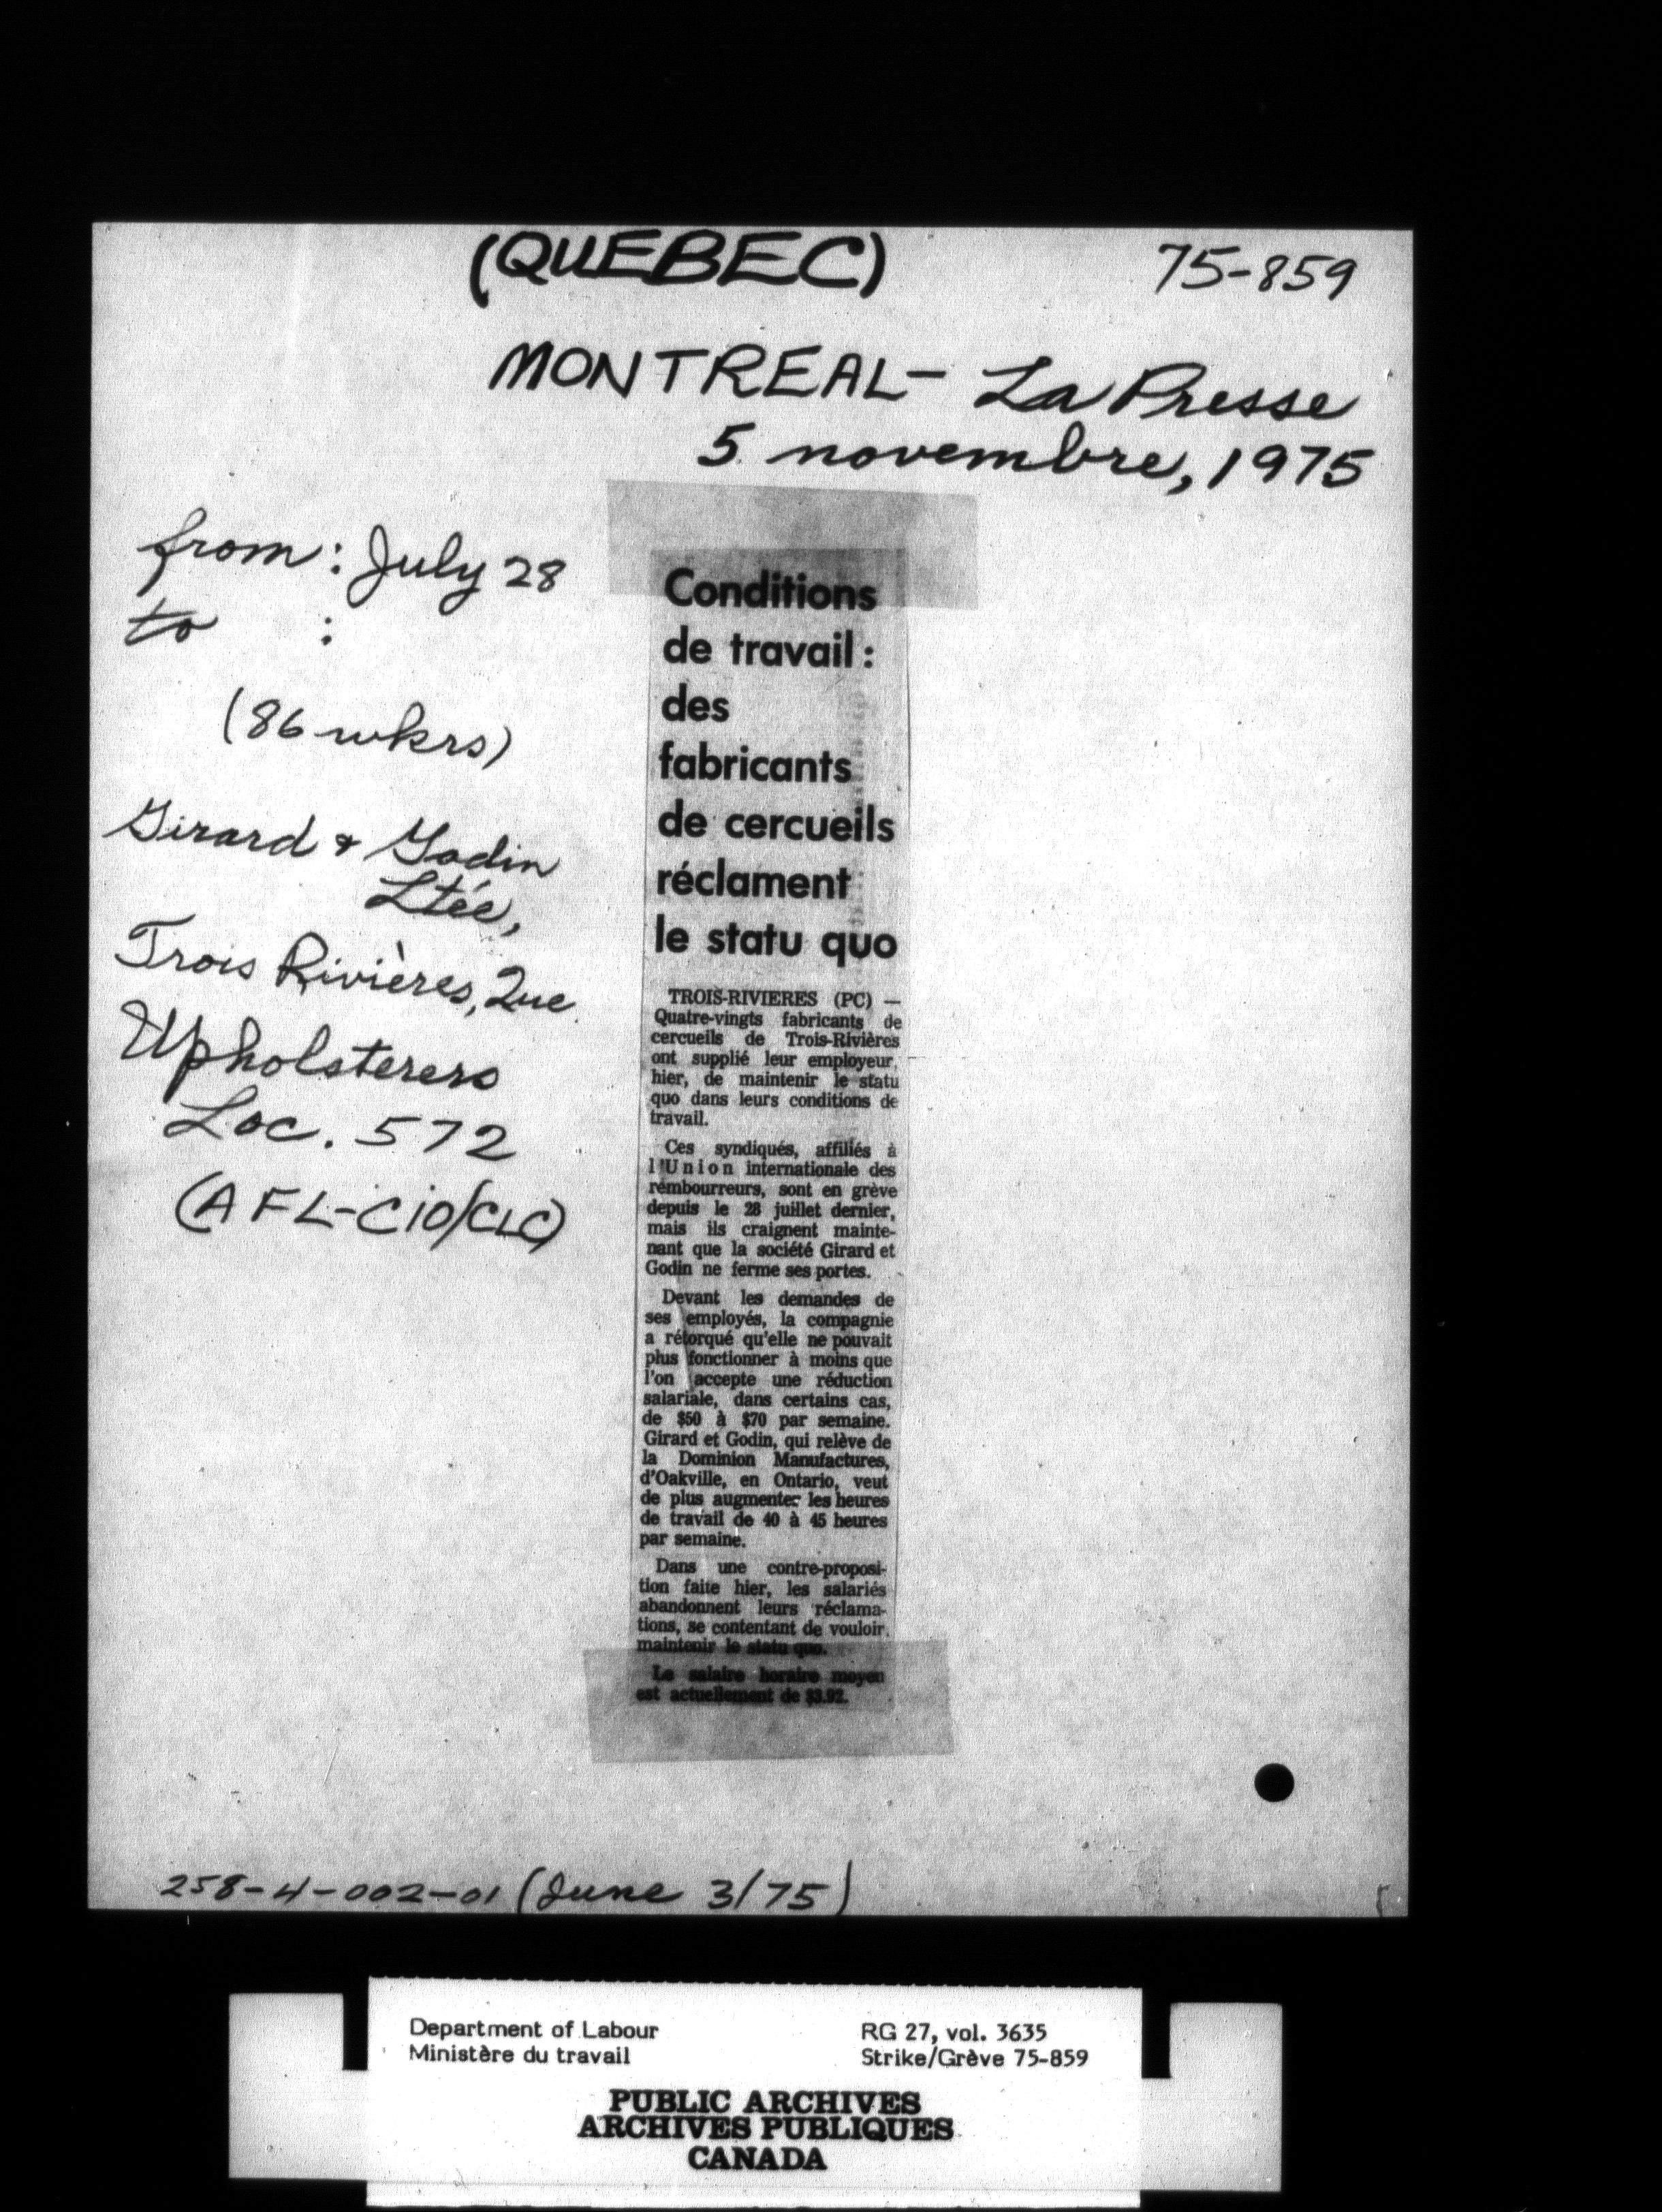 (QUEBEC)
75-859
MONTREAL- La Presse
5 novembre, 1975
from: July 28
to :
(86 wkrs)
Girard & Godin
Ltée,
Trois Rivières, Que.
Upholsterers
Loc. 572
(AFL-CIO/CLC)
Conditions
de travail:
des
fabricants
de cercueils
réclament
le statu quo
TROIS-RIVIERES (PC) —
Quatre-vingts fabricants de
cercueils de Trois-Rivières
ont supplié leur employeur,
hier, de maintenir le statu
quo dans leurs conditions de
travail.
Ces syndiqués, affiliés à
l'Union internationale des
rembourreurs, sont en grève
depuis le 28 juillet dernier,
mais ils craignent mainte-
nant que la société Girard et
Godin ne ferme ses portes.
Devant les demandes de
ses employés, la compagnie
a rétorqué qu'elle ne pouvait
plus fonctionner à moins que
l'on accepte une réduction
salariale, dans certains cas,
de $50 à $70 par semaine.
Girard et Godin, qui relève de
la Dominion Manufactures,
d'Oakville, en Ontario, veut
de plus augmenter les heures
de travail de 40 à 45 heures
par semaine.
Dans une contre-proposi-
tion faite hier, les salariés
abandonnent leurs réclama-
tions, se contentant de vouloir
maintenir le statu quo.
Le salaire horaire moyen
est actuellement de $3.92.
258-4-002-01 (June 3/75)
Department of Labour
Ministère du travail
RG 27, vol. 3635
Strike/Grève 75-859
PUBLIC ARCHIVES
ARCHIVES PUBLIQUES
CANADA